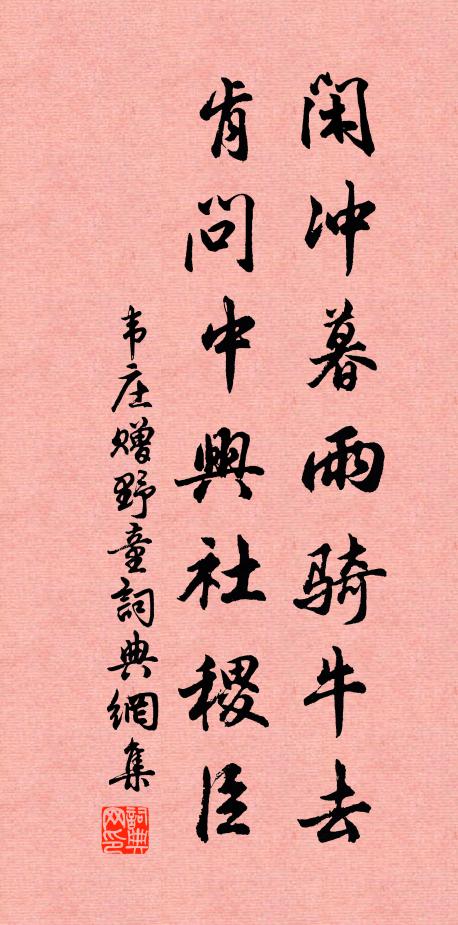 闲冲暮雨骑牛去
肯问中興社稷臣
韦庄赠野童詞典網集
詞典网印